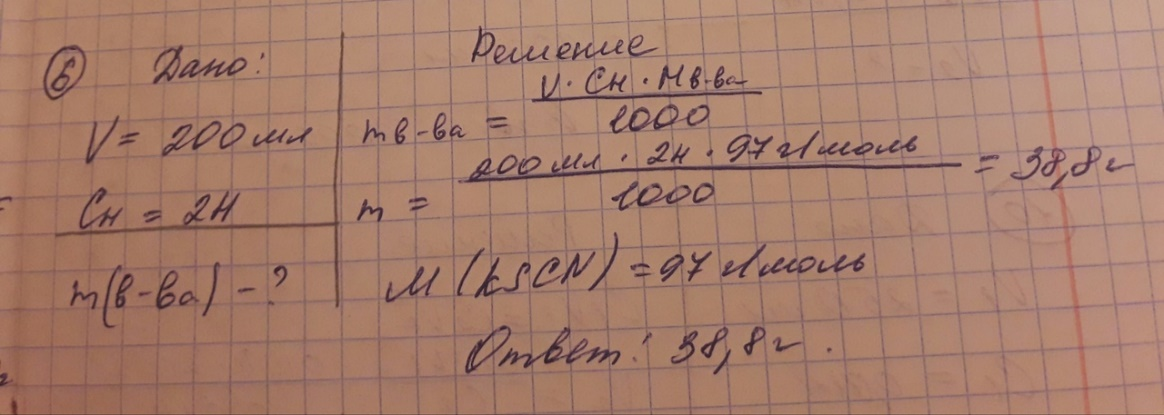 6 Дано:
V = 200 мл
Сн = 2Н
m(в-ва) - ?
Решение
mв-ва = V · Сн · Мв-ва / 1000
m = 200 мл · 2н · 97 г/моль / 1000 = 38,8 г
М (KSCN) = 97 г/моль
Ответ: 38,8 г.